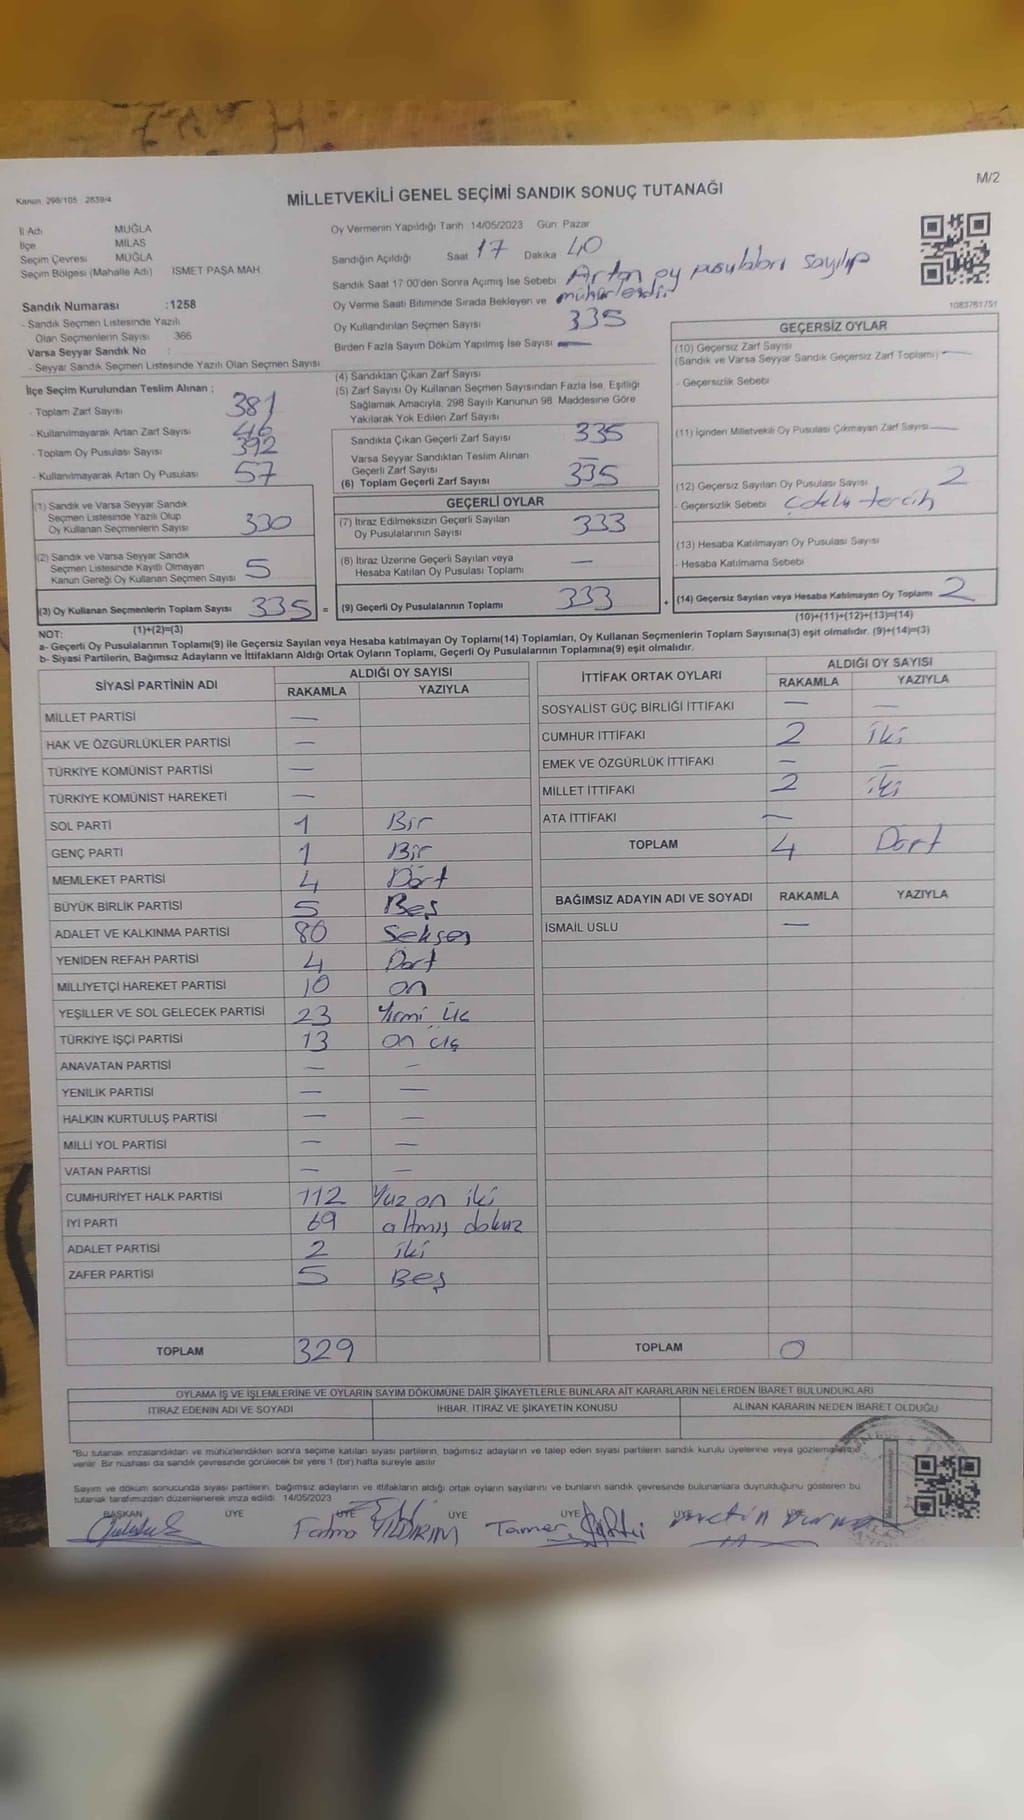 M/2
Kanun 298/105 2839/4
MİLLETVEKİLİ GENEL SEÇİMİ SANDIK SONUÇ TUTANAĞI
İl Adı MUĞLA
İlçe MİLAS
Seçim Çevresi MUĞLA
Seçim Bölgesi (Mahalle Adı) İSMET PAŞA MAH.
Sandık Numarası :1258
- Sandık Seçmen Listesinde Yazılı
Olan Seçmenlerin Sayısı 366
Varsa Seyyar Sandık No :
- Seyyar Sandık Seçmen Listesinde Yazılı Olan Seçmen Sayısı
Oy Vermenin Yapıldığı Tarih 14/05/2023 Gün: Pazar
Sandığın Açıldığı Saat 17 Dakika 40
Sandık Saat 17:00'den Sonra Açımış İse Sebebi Artan oy pusulaları sayılıp
mühürlendi.
Oy Verme Saati Bitiminde Sırada Bekleyen ve
Oy Kullandırılan Seçmen Sayısı 335
Birden Fazla Sayım Döküm Yapılmış İse Sayısı —
1083761751
İlçe Seçim Kurulundan Teslim Alınan ;
- Toplam Zarf Sayısı 381
- Kullanılmayarak Artan Zarf Sayısı 46
- Toplam Oy Pusulası Sayısı 392
- Kullanılmayarak Artan Oy Pusulası 57
(1) Sandık ve Varsa Seyyar Sandık
Seçmen Listesinde Yazılı Olup
Oy Kullanan Seçmenlerin Sayısı 330
(2) Sandık ve Varsa Seyyar Sandık
Seçmen Listesinde Kayıtlı Olmayan
Kanun Gereği Oy Kullanan Seçmen Sayısı 5
(3) Oy Kullanan Seçmenlerin Toplam Sayısı 335 =
(1)+(2)=(3)
(4) Sandıktan Çıkan Zarf Sayısı
(5) Zarf Sayısı Oy Kullanan Seçmen Sayısından Fazla İse, Eşitliği
Sağlamak Amacıyla, 298 Sayılı Kanunun 98. Maddesine Göre
Yakılarak Yok Edilen Zarf Sayısı
Sandıkta Çıkan Geçerli Zarf Sayısı 335
Varsa Seyyar Sandıktan Teslim Alınan
Geçerli Zarf Sayısı —
(6) Toplam Geçerli Zarf Sayısı 335
GEÇERLİ OYLAR
(7) İtiraz Edilmeksizin Geçerli Sayılan
Oy Pusulalarının Sayısı 333
(8) İtiraz Üzerine Geçerli Sayılan veya
Hesaba Katılan Oy Pusulası Toplamı —
(9) Geçerli Oy Pusulalarının Toplamı 333 +
GEÇERSİZ OYLAR
(10) Geçersiz Zarf Sayısı
(Sandık ve Varsa Seyyar Sandık Geçersiz Zarf Toplamı) —
- Geçersizlik Sebebi
(11) İçinden Milletvekili Oy Pusulası Çıkmayan Zarf Sayısı —
(12) Geçersiz Sayılan Oy Pusulası Sayısı 2
- Geçersizlik Sebebi Çoklu tercih
(13) Hesaba Katılmayan Oy Pusulası Sayısı
- Hesaba Katılmama Sebebi
(14) Geçersiz Sayılan veya Hesaba Katılmayan Oy Toplamı 2
(10)+(11)+(12)+(13)=(14)
NOT:
a- Geçerli Oy Pusulalarının Toplamı(9) ile Geçersiz Sayılan veya Hesaba katılmayan Oy Toplamı(14) Toplamları, Oy Kullanan Seçmenlerin Toplam Sayısına(3) eşit olmalıdır. (9)+(14)=(3)
b- Siyasi Partilerin, Bağımsız Adayların ve İttifakların Aldığı Ortak Oyların Toplamı, Geçerli Oy Pusulalarının Toplamına(9) eşit olmalıdır.
SİYASİ PARTİNİN ADI ALDIĞI OY SAYISI
RAKAMLA YAZIYLA
MİLLET PARTİSİ —
HAK VE ÖZGÜRLÜKLER PARTİSİ —
TÜRKİYE KOMÜNİST PARTİSİ —
TÜRKİYE KOMÜNİST HAREKETİ —
SOL PARTİ 1 Bir
GENÇ PARTİ 1 Bir
MEMLEKET PARTİSİ 4 Dört
BÜYÜK BİRLİK PARTİSİ 5 Beş
ADALET VE KALKINMA PARTİSİ 80 Seksen
YENİDEN REFAH PARTİSİ 4 Dört
MİLLİYETÇİ HAREKET PARTİSİ 10 on
YEŞİLLER VE SOL GELECEK PARTİSİ 23 Yirmi Üç
TÜRKİYE İŞÇİ PARTİSİ 13 on üç
ANAVATAN PARTİSİ — —
YENİLİK PARTİSİ — —
HALKIN KURTULUŞ PARTİSİ — —
MİLLİ YOL PARTİSİ — —
VATAN PARTİSİ — —
CUMHURİYET HALK PARTİSİ 112 Yüz on iki
İYİ PARTİ 69 altmış dokuz
ADALET PARTİSİ 2 iki
ZAFER PARTİSİ 5 Beş
TOPLAM 329
İTTİFAK ORTAK OYLARI ALDIĞI OY SAYISI
RAKAMLA YAZIYLA
SOSYALİST GÜÇ BİRLİĞİ İTTİFAKI — —
CUMHUR İTTİFAKI 2 iki
EMEK VE ÖZGÜRLÜK İTTİFAKI — —
MİLLET İTTİFAKI 2 iki
ATA İTTİFAKI —
TOPLAM 4 Dört
BAĞIMSIZ ADAYIN ADI VE SOYADI RAKAMLA YAZIYLA
İSMAİL USLU —
TOPLAM 0
OYLAMA İŞ VE İŞLEMLERİNE VE OYLARIN SAYIM DÖKÜMÜNE DAİR ŞİKAYETLERLE BUNLARA AİT KARARLARIN NELERDEN İBARET BULUNDUKLARI
İTİRAZ EDENİN ADI VE SOYADI İHBAR, İTİRAZ VE ŞİKAYETİN KONUSU ALINAN KARARIN NEDEN İBARET OLDUĞU
*Bu tutanak imzalandıktan ve mühürlendikten sonra seçime katılan siyasi partilerin, bağımsız adayların ve talep eden siyasi partilerin sandık kurulu üyelerine veya gözlemcilerine
verilir. Bir nüshası da sandık çevresinde görülecek bir yere 1 (bir) hafta süreyle asılır.
Sayım ve döküm sonucunda siyasi partilerin, bağımsız adayların ve ittifakların aldığı ortak oyların sayılarını ve bunların sandık çevresinde bulunanlara duyrulduğunu gösteren bu
tutanak tarafımızdan düzenlenerek imza edildi. 14/05/2023
BAŞKAN ÜYE ÜYE ÜYE ÜYE ÜYE ÜYE
Fatma YILDIRIM Tamer Metin